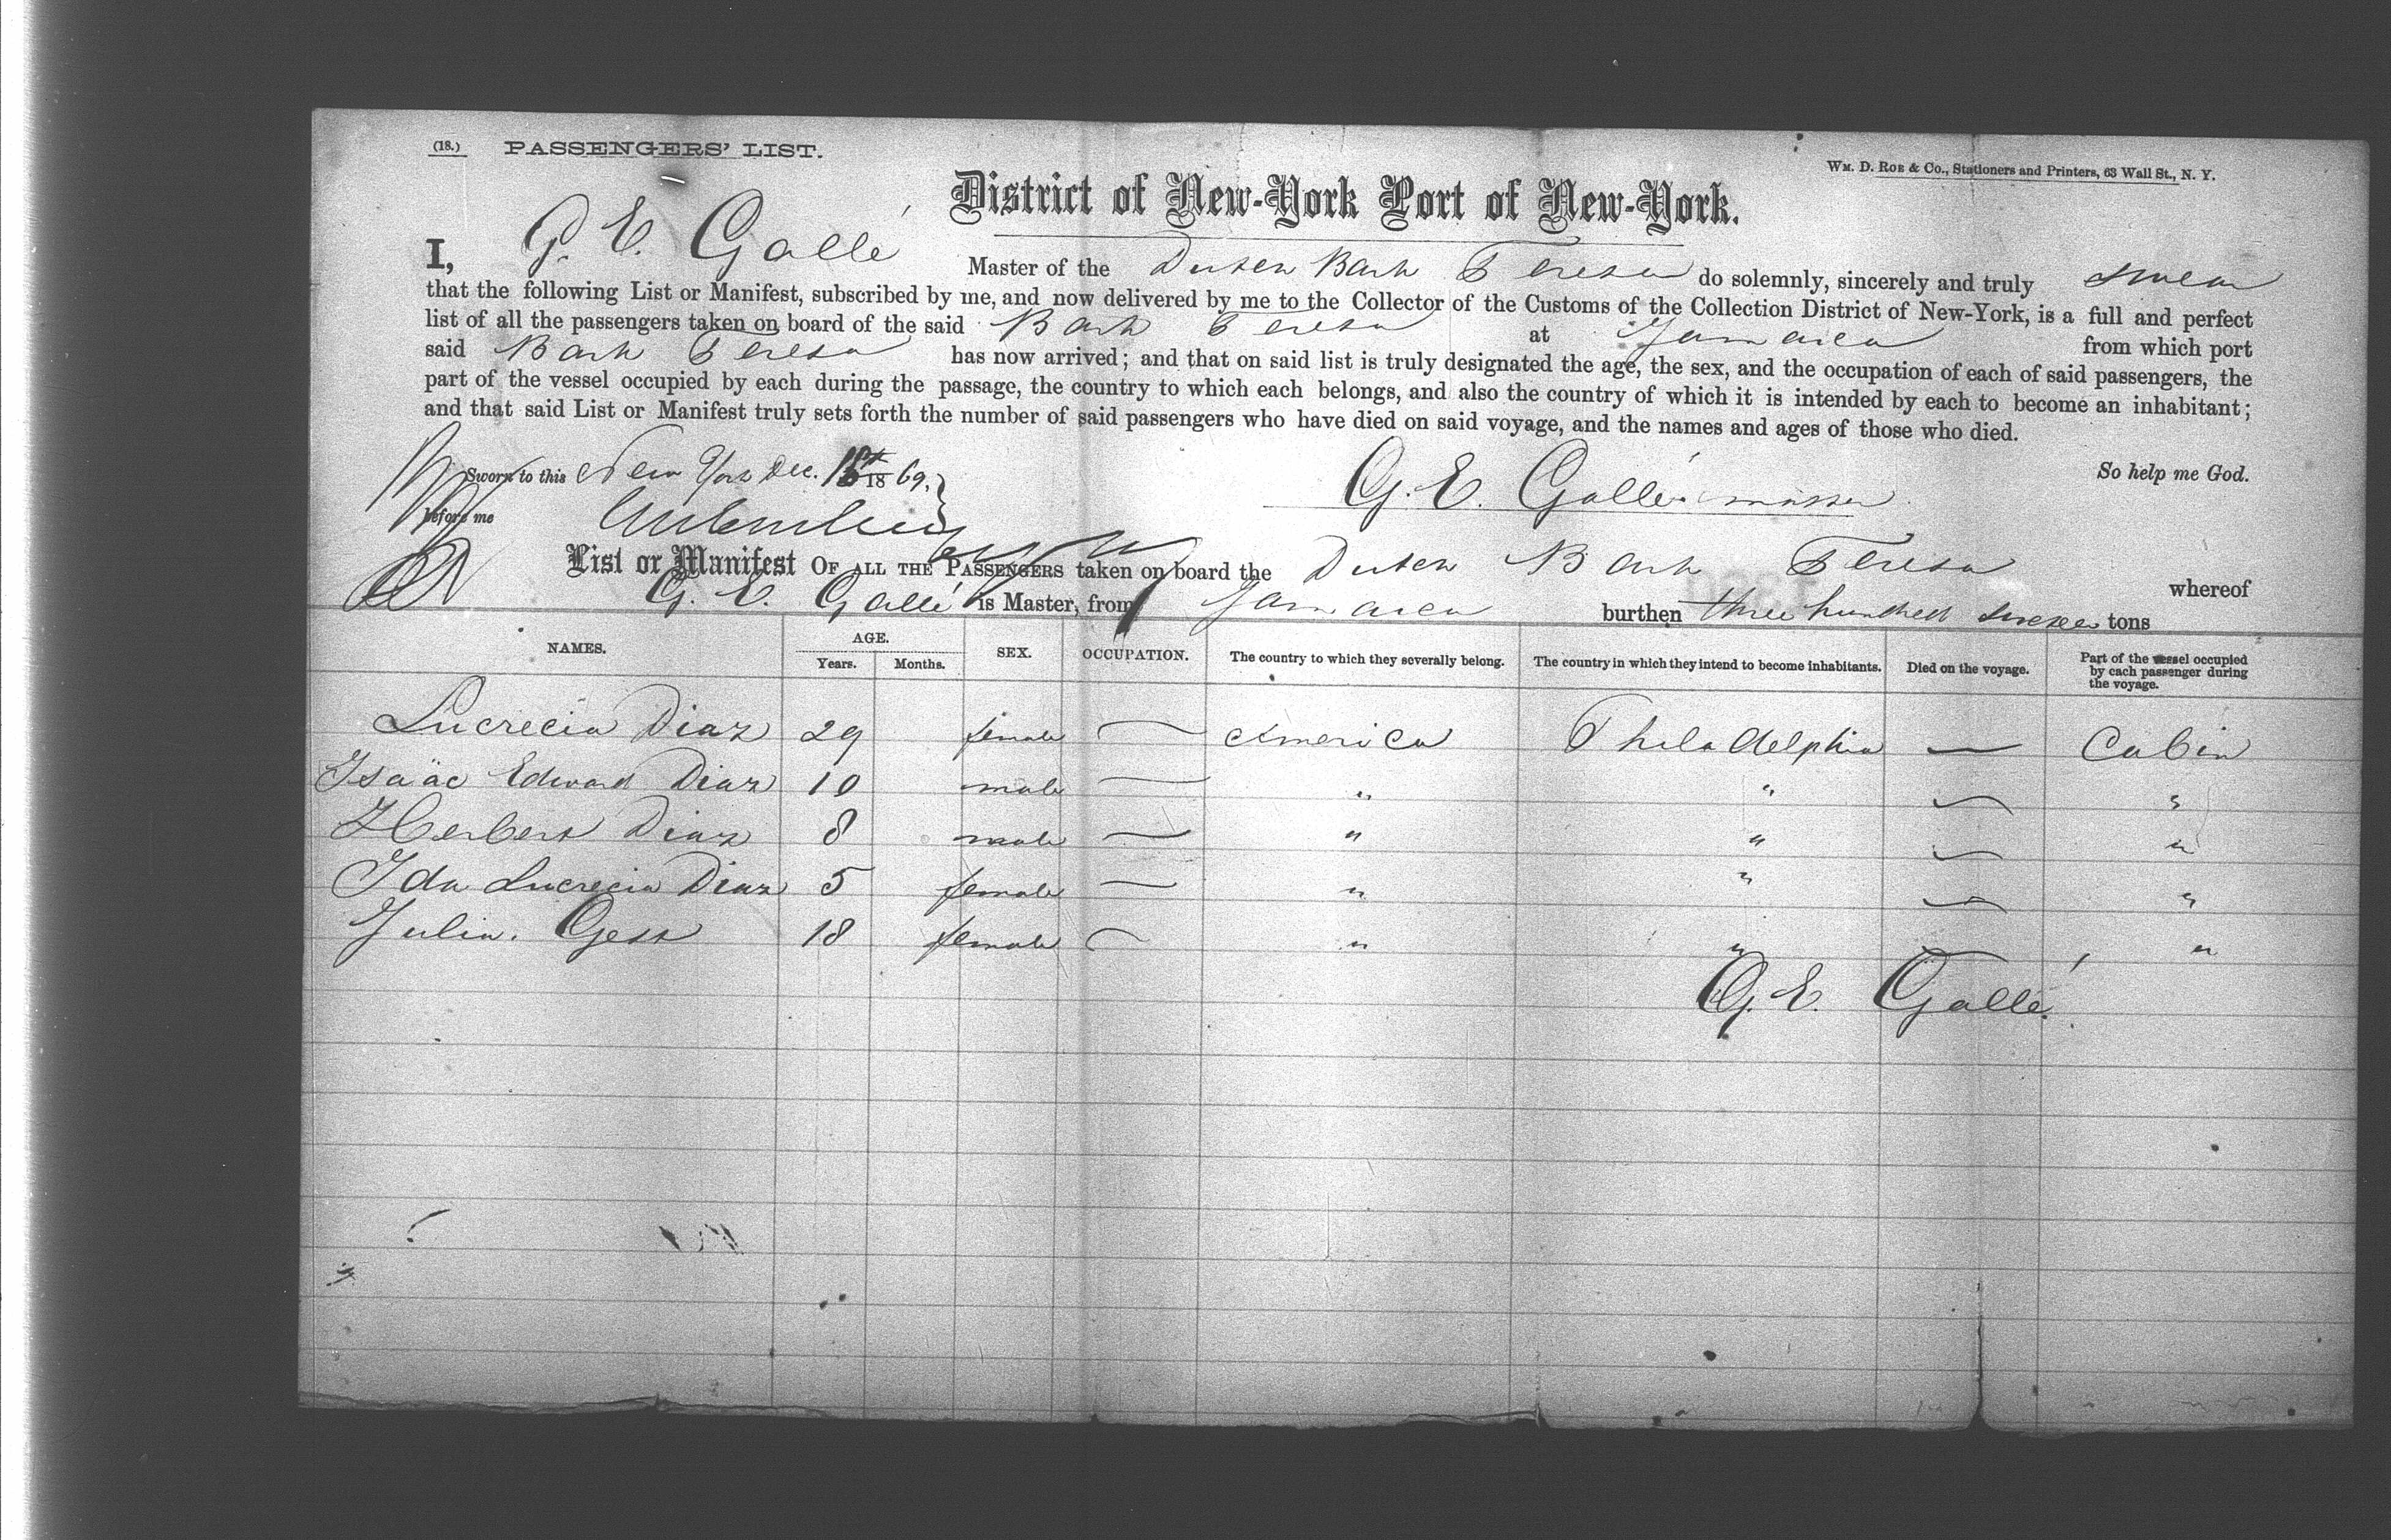 (18.) PASSENGERS' LIST.
WM. D. ROE & CO., Stationers and Printers, 63 Wall St., N. Y.
District of New-York Port of New-York.
I, G. E. Gallé Master of the Dutch Bark Teresa do solemnly, sincerely and truly swear
that the following List or Manifest, subscribed by me, and now delivered by me to the Collector of the Customs of the Collection District of New-York, is a full and perfect
list of all the passengers taken on board of the said Bark Teresa at Jamaica from which port
said Bark Teresa has now arrived; and that on said list is truly designated the age, the sex, and the occupation of each of said passengers, the
part of the vessel occupied by each during the passage, the country to which each belongs, and also the country of which it is intended by each to become an inhabitant;
and that said List or Manifest truly sets forth the number of said passengers who have died on said voyage, and the names and ages of those who died.
So help me God.
Sworn to this New York Dec. 18 69.
G. E. Gallé master
before me
List or Manifest OF ALL THE PASSENGERS taken on board the Dutch Bark Teresa whereof
G. E. Gallé is Master, from Jamaica burthen three hundred tons
NAMES. AGE. Years. Months. SEX. OCCUPATION. The country to which they severally belong. The country in which they intend to become inhabitants. Died on the voyage. Part of the vessel occupied by each passenger during the voyage.
Lucrecia Diaz 29 female — America Philadelphia — Cabin
Isaäc Edward Diaz 10 male — " " — "
Herbert Diaz 8 male — " " — "
Ida Lucrecia Diaz 5 female — " " — "
Julia. Gess 18 female — " " — "
G. E. Gallé.